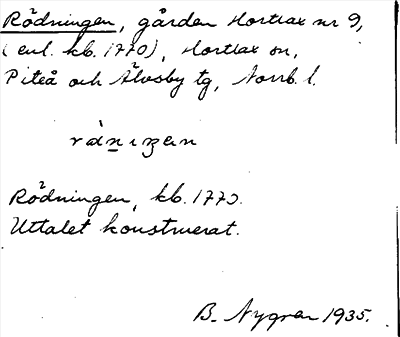 Rödningen, gården Hortlax nr 9,
(enl. kb. 1770), Hortlax sn,
Piteå och Älvsby tg, Norrb. l.
Rödningen, kb. 1770.
Uttalet konstruerat.
B. Nygren 1935.